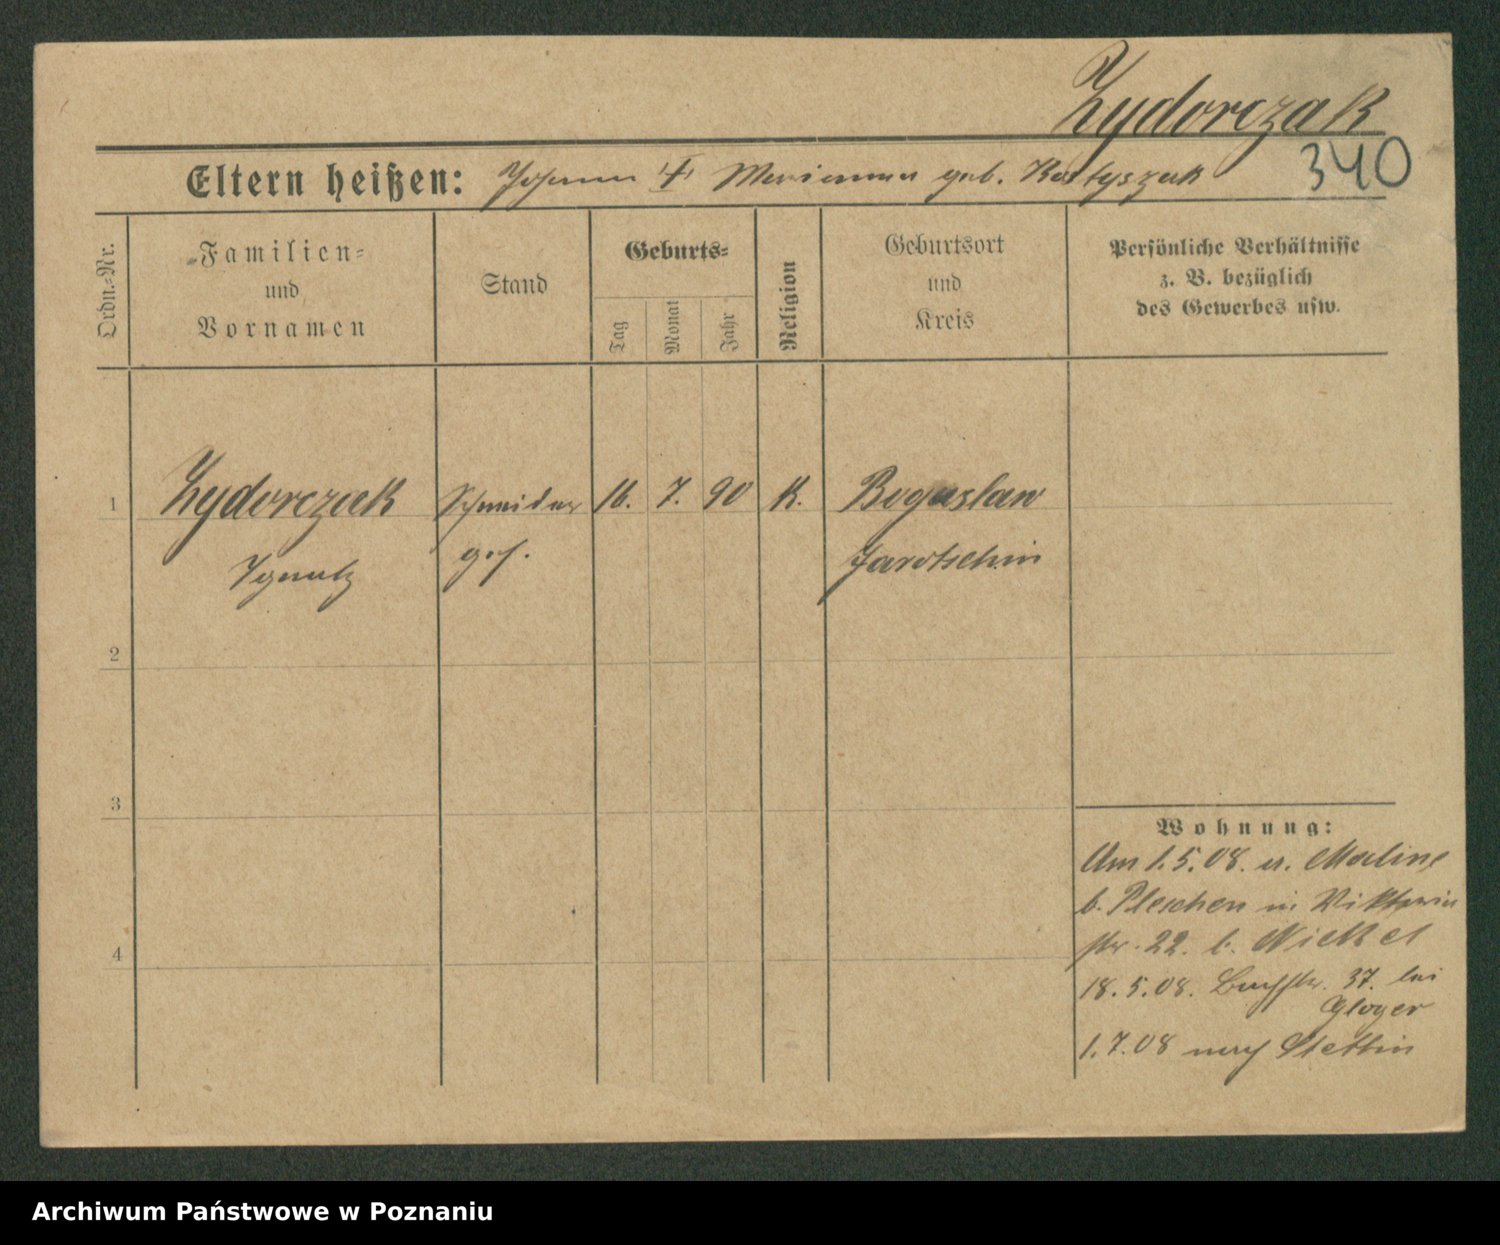 Zydorczak
340
Eltern heißen: Johann † Marianna geb. Kostyszak
Ordn.-Nr.
Familien-
und
Vornamen
Stand
Geburts-
Tag
Monat
Jahr
Religion
Geburtsort
und
Kreis
Persönliche Verhältnisse
z. B. bezüglich
des Gewerbes usw.
1 Zydorczak Schneider 16. 7. 90 K. Boguslaw
Ignatz ges. Jarotschin
2
3
4
Wohnung:
Am 1.5.08. a. Maline
b. Pleschen in Viktoria
str. 22. b. Nickel
18.5.08. 37. bei
Gloger
1.7.08 nach Stettin
Archiwum Państwowe w Poznaniu